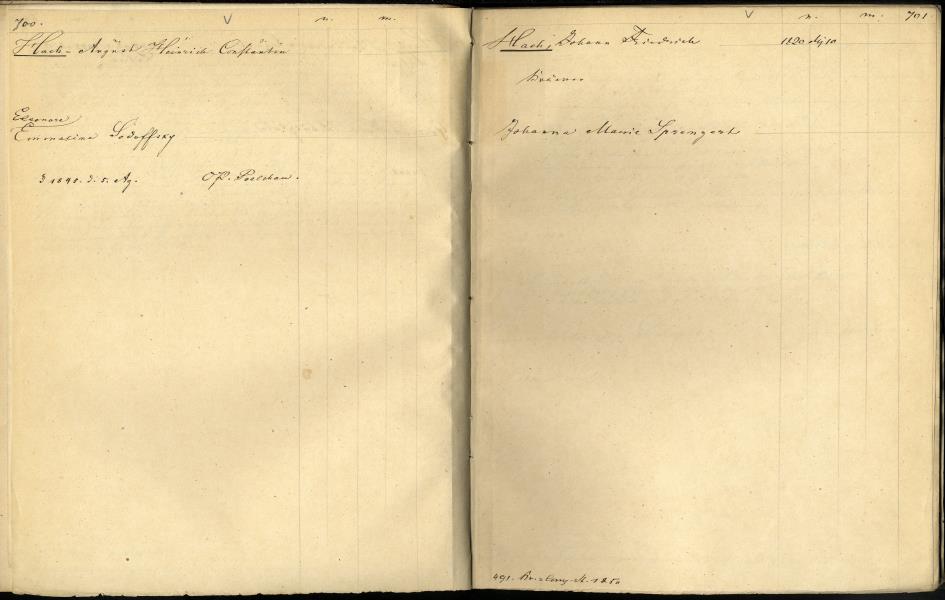 700. V n. m.
Hach - August Heinrich Constantin
Eleonore
Emmeline Sodoffsky
1895. d. 5. Ag. OP. Poelchau.
V n. m. 701
Hach, Johann Friedrich 1820
Johanna Marie Sprengert
491. 1850